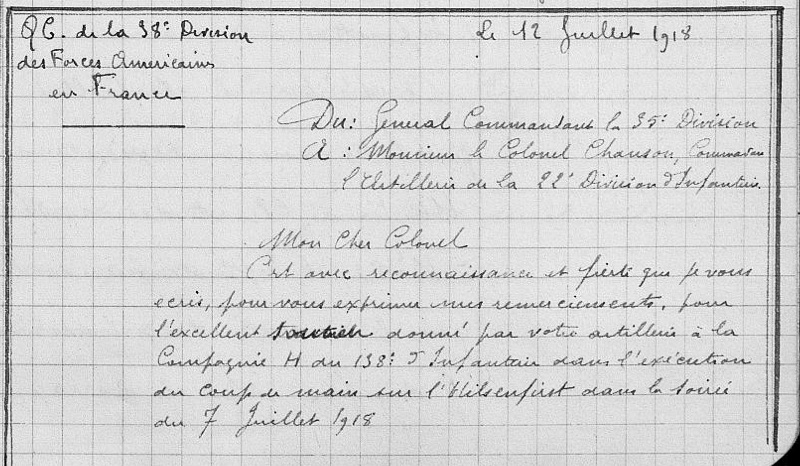 Q.G. de la 38e Division
des Forces Américains
en France
Le 12 Juillet 1918
Du : General Commandant la 35e Division
A : Monsieur le Colonel Chanson, Comman
l'Artillerie de la 22e Division d'Infanterie.
Mon Cher Colonel
C'est avec reconnaissance et fierté que je vous
ecris, pour vous exprimer mes remerciements, pour
l'excellent soutien donné par votre artillerie à la
Compagnie H du 138e d'Infanterie dans l'exécution
du coup de main sur l'Hilsenfirst dans la soirée
du 7 Juillet 1918